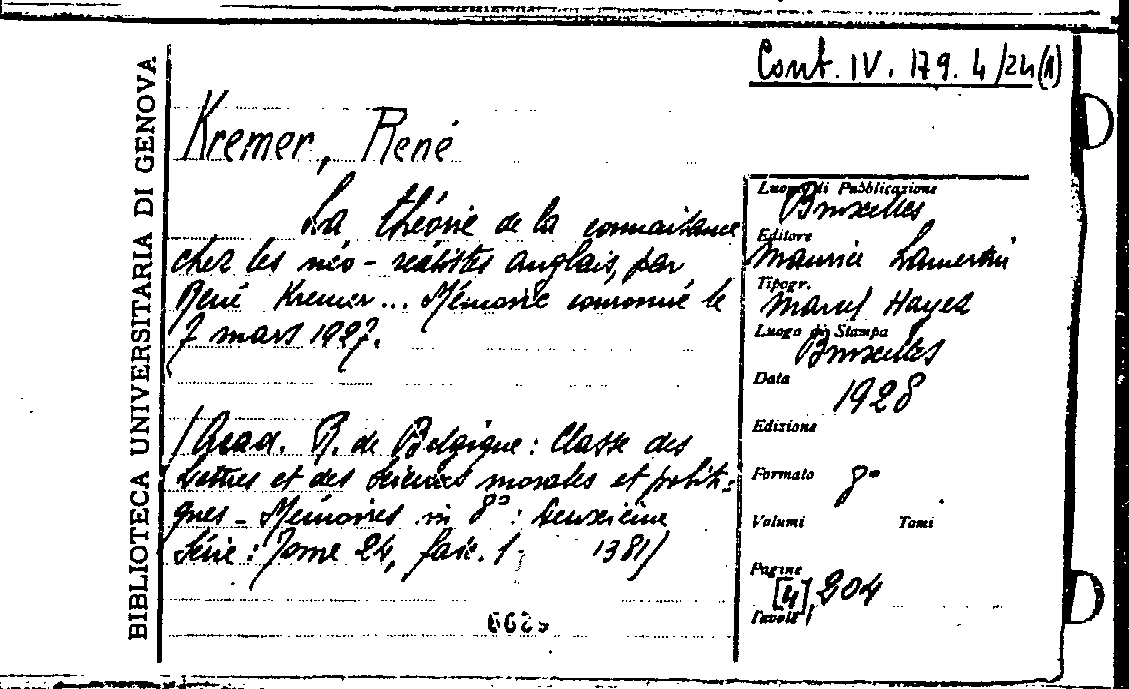 BIBLIOTECA UNIVERSITARIA DI GENOVA
Cont. IV. 179. 4/24(1)
Kremer, René
La théorie de la connaissance
chez les néo-réalistes anglais, par
René Kremer... Mémoire couronné le
7 mars 1927.
/Acad. R. de Belgique: Classe des
Lettres et des Sciences morales et politi=
ques - Mémoires in 8°: Deuxième
Série: Tome 24, fasc. 1. 1381/
Luogo di Pubblicazione
Bruxelles
Editore
Maurice Lamertin
Tipogr.
Marcel Hayez
Luogo di Stampa
Bruxelles
Data
1928
Edizione
Formato 8°
Volumi Tomi
Pagine
[4], 204
Tavole